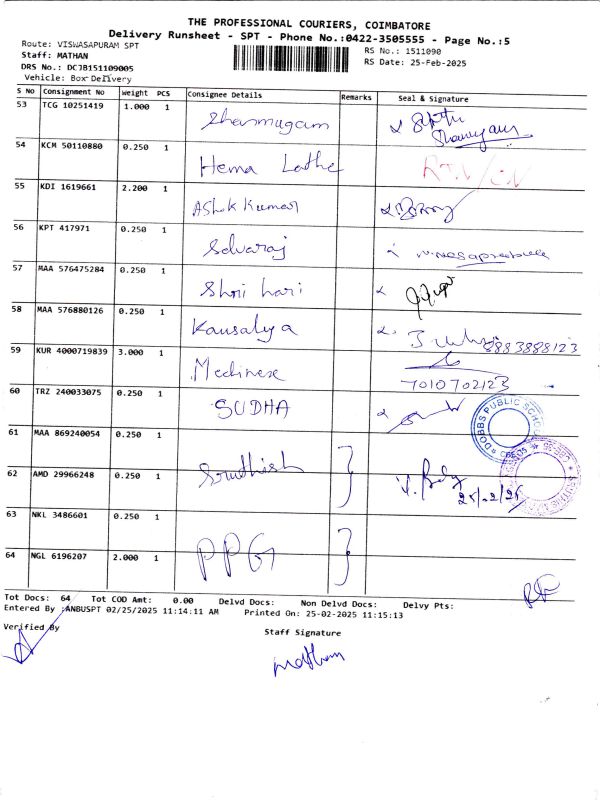 THE PROFESSIONAL COURIERS, COIMBATORE
Delivery Runsheet - SPT - Phone No.:0422-3505555 - Page No.:5
Route: VISWASAPURAM SPT
RS No.: 1511090
Staff: MATHAN
RS Date: 25-Feb-2025
DRS No.: DCJB151109005
Vehicle: Box Delivery
S No Consignment No Weight PCS Consignee Details Remarks Seal & Signature
53 TCG 10251419 1.000 1 Shanmugam
54 KCM 50110880 0.250 1 Hema Latha
55 KDI 1619661 2.200 1 Ashok Kumar
56 KPT 417971 0.250 1 Selvaraj
57 MAA 576475284 0.250 1 Shri hari
58 MAA 576880126 0.250 1 Kausalya 8883888123
59 KUR 4000719839 3.000 1 Medinexe 7010702123
60 TRZ 240033075 0.250 1 SUDHA
DOBBS PUBLIC SCHOOL
61 MAA 869240054 0.250 1
62 AMD 29966248 0.250 1 Sruthish
63 NKL 3486601 0.250 1
64 NGL 6196207 2.000 1 PPG
Tot Docs: 64 Tot COD Amt: 0.00 Delvd Docs: Non Delvd Docs: Delvy Pts:
Entered By :ANBUSPT 02/25/2025 11:14:11 AM Printed On: 25-02-2025 11:15:13
Verified By
Staff Signature
Mathan